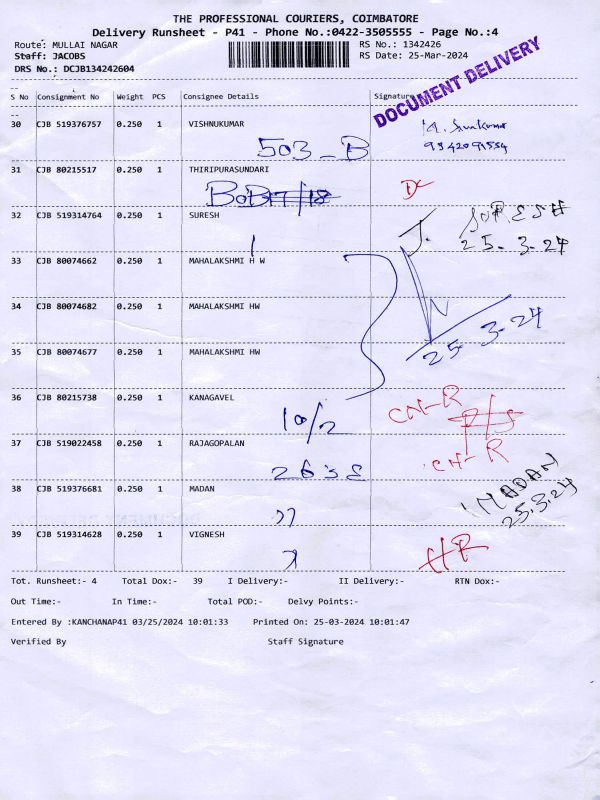 THE PROFESSIONAL COURIERS, COIMBATORE
Delivery Runsheet - P41 - Phone No.:0422-3505555 - Page No.:4
Route: MULLAI NAGAR RS No.: 1342426
Staff: JACOBS RS Date: 25-Mar-2024
DRS No.: DCJB134242604
DOCUMENT DELIVERY
S No Consignment No Weight PCS Consignee Details Signature
30 CJB 519376757 0.250 1 VISHNUKUMAR
503-B
31 CJB 80215517 0.250 1 THIRIPURASUNDARI
DC
32 CJB 519314764 0.250 1 SURESH
J. SURESH
25-3-24
33 CJB 80074662 0.250 1 MAHALAKSHMI H W
34 CJB 80074682 0.250 1 MAHALAKSHMI HW
25-3-24
35 CJB 80074677 0.250 1 MAHALAKSHMI HW
36 CJB 80215738 0.250 1 KANAGAVEL
10/2 CN-R
37 CJB 519022458 0.250 1 RAJAGOPALAN
CN-R
38 CJB 519376681 0.250 1 MADAN
MADAN
25.3.24
39 CJB 519314628 0.250 1 VIGNESH
HR
Tot. Runsheet:- 4 Total Dox:- 39 I Delivery:- II Delivery:- RTN Dox:-
Out Time:- In Time:- Total POD:- Delvy Points:-
Entered By :KANCHANAP41 03/25/2024 10:01:33 Printed On: 25-03-2024 10:01:47
Verified By Staff Signature